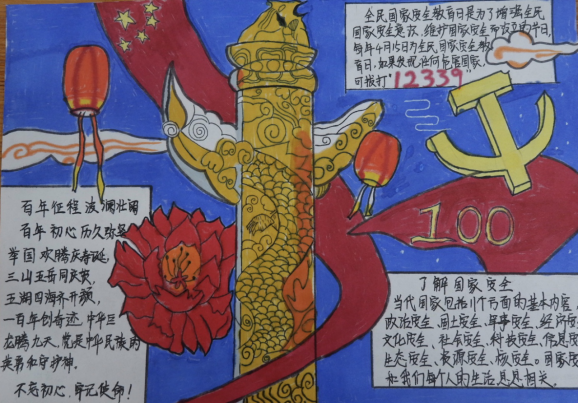 全民国家安全教育日是为了增强全民
国家安全意识、维护国家安全而设立的节日,
每年4月15日为全民国家安全教
育日,如果发现任何危害国家,
可拨打"12339"
百年征程波澜壮阔
百年初心历久弥坚
举国欢腾庆寿诞,
三山五岳同庆贺,
五湖四海齐开颜,
一百年创奇迹,中华巨
龙腾九天,党是中华民族的
英勇和守护神.
不忘初心,牢记使命!
100
了解国家安全
当代国家包括11个方面的基本内容,
政治安全、国土安全、军事安全、经济安
文化安全、社会安全、科技安全、信息安
生态安全、资源安全、核安全。国家安
和我们每个人的生活息息相关.